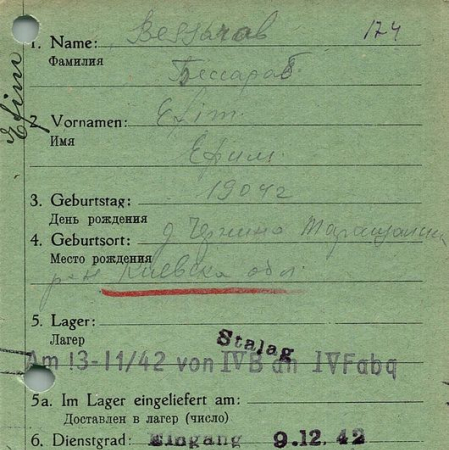 Efim
Bessarab 174
1. Name:
Фамилия
Бессараб
2. Vornamen: Efim.
Имя
Ефим.
3. Geburtstag: 1904г
День рождения
4. Geburtsort: д
Место рождения
р-н Киевска обл.
5. Lager:
Лагер
Stalag
Am 13-11/42 von IVB an IVF abg
5a. Im Lager eingeliefert am:
Доставлен в лагер (число)
6. Dienstgrad: Eingang 9.12.42